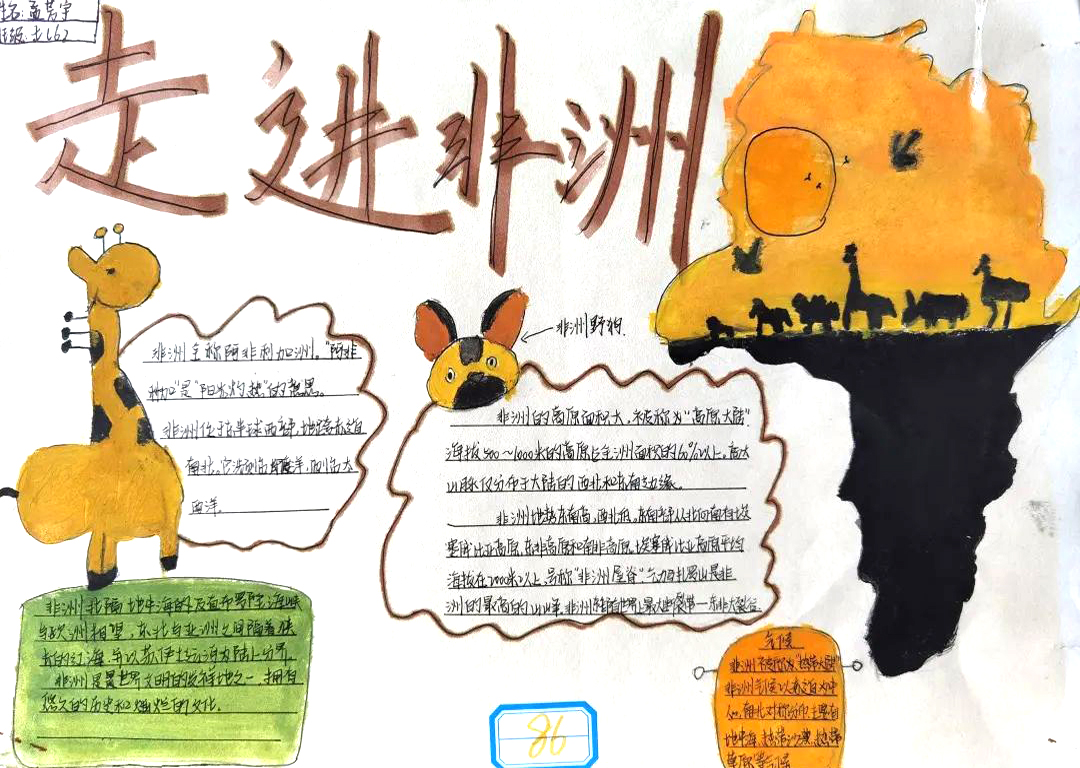 姓名:孟萇宇
班级:七162
走进非洲
非洲全称阿非利加洲。"阿非
利加"是"阳光灼热"的意思。
非洲位于东半球西部,地跨赤道
南北。它东到印度洋,西到大
西洋.
非洲野狗
非洲的高原面积大,被称为"高原大陆"
海拔500~1000米的高原占全洲面积的60%以上,高大
山脉仅分布于大陆的西北和东南边缘。
非洲地势东南高,西北低,东南部从北向南有埃
塞俄比亚高原,东非高原和南非高原,埃塞俄比亚高原平均
海拔在2000米以上,号称"非洲屋脊"乞力马扎罗山是非
洲的最高的山峰,非洲有世界上最大裂谷带—东非大裂谷.
非洲北隔地中海的及直布罗陀海峡
与欧洲相望,东北与亚洲之间隔着狭
长的红海,并以苏伊士运河为陆上分界,
非洲是是世界文明的发祥地之一,拥有
悠久的历史和灿烂的文化.
气候
非洲被称为"热带大陆"
非洲气候以赤道为中
心,南北对称分布,主要有
地中海,热带沙漠,热带
草原等气候
86